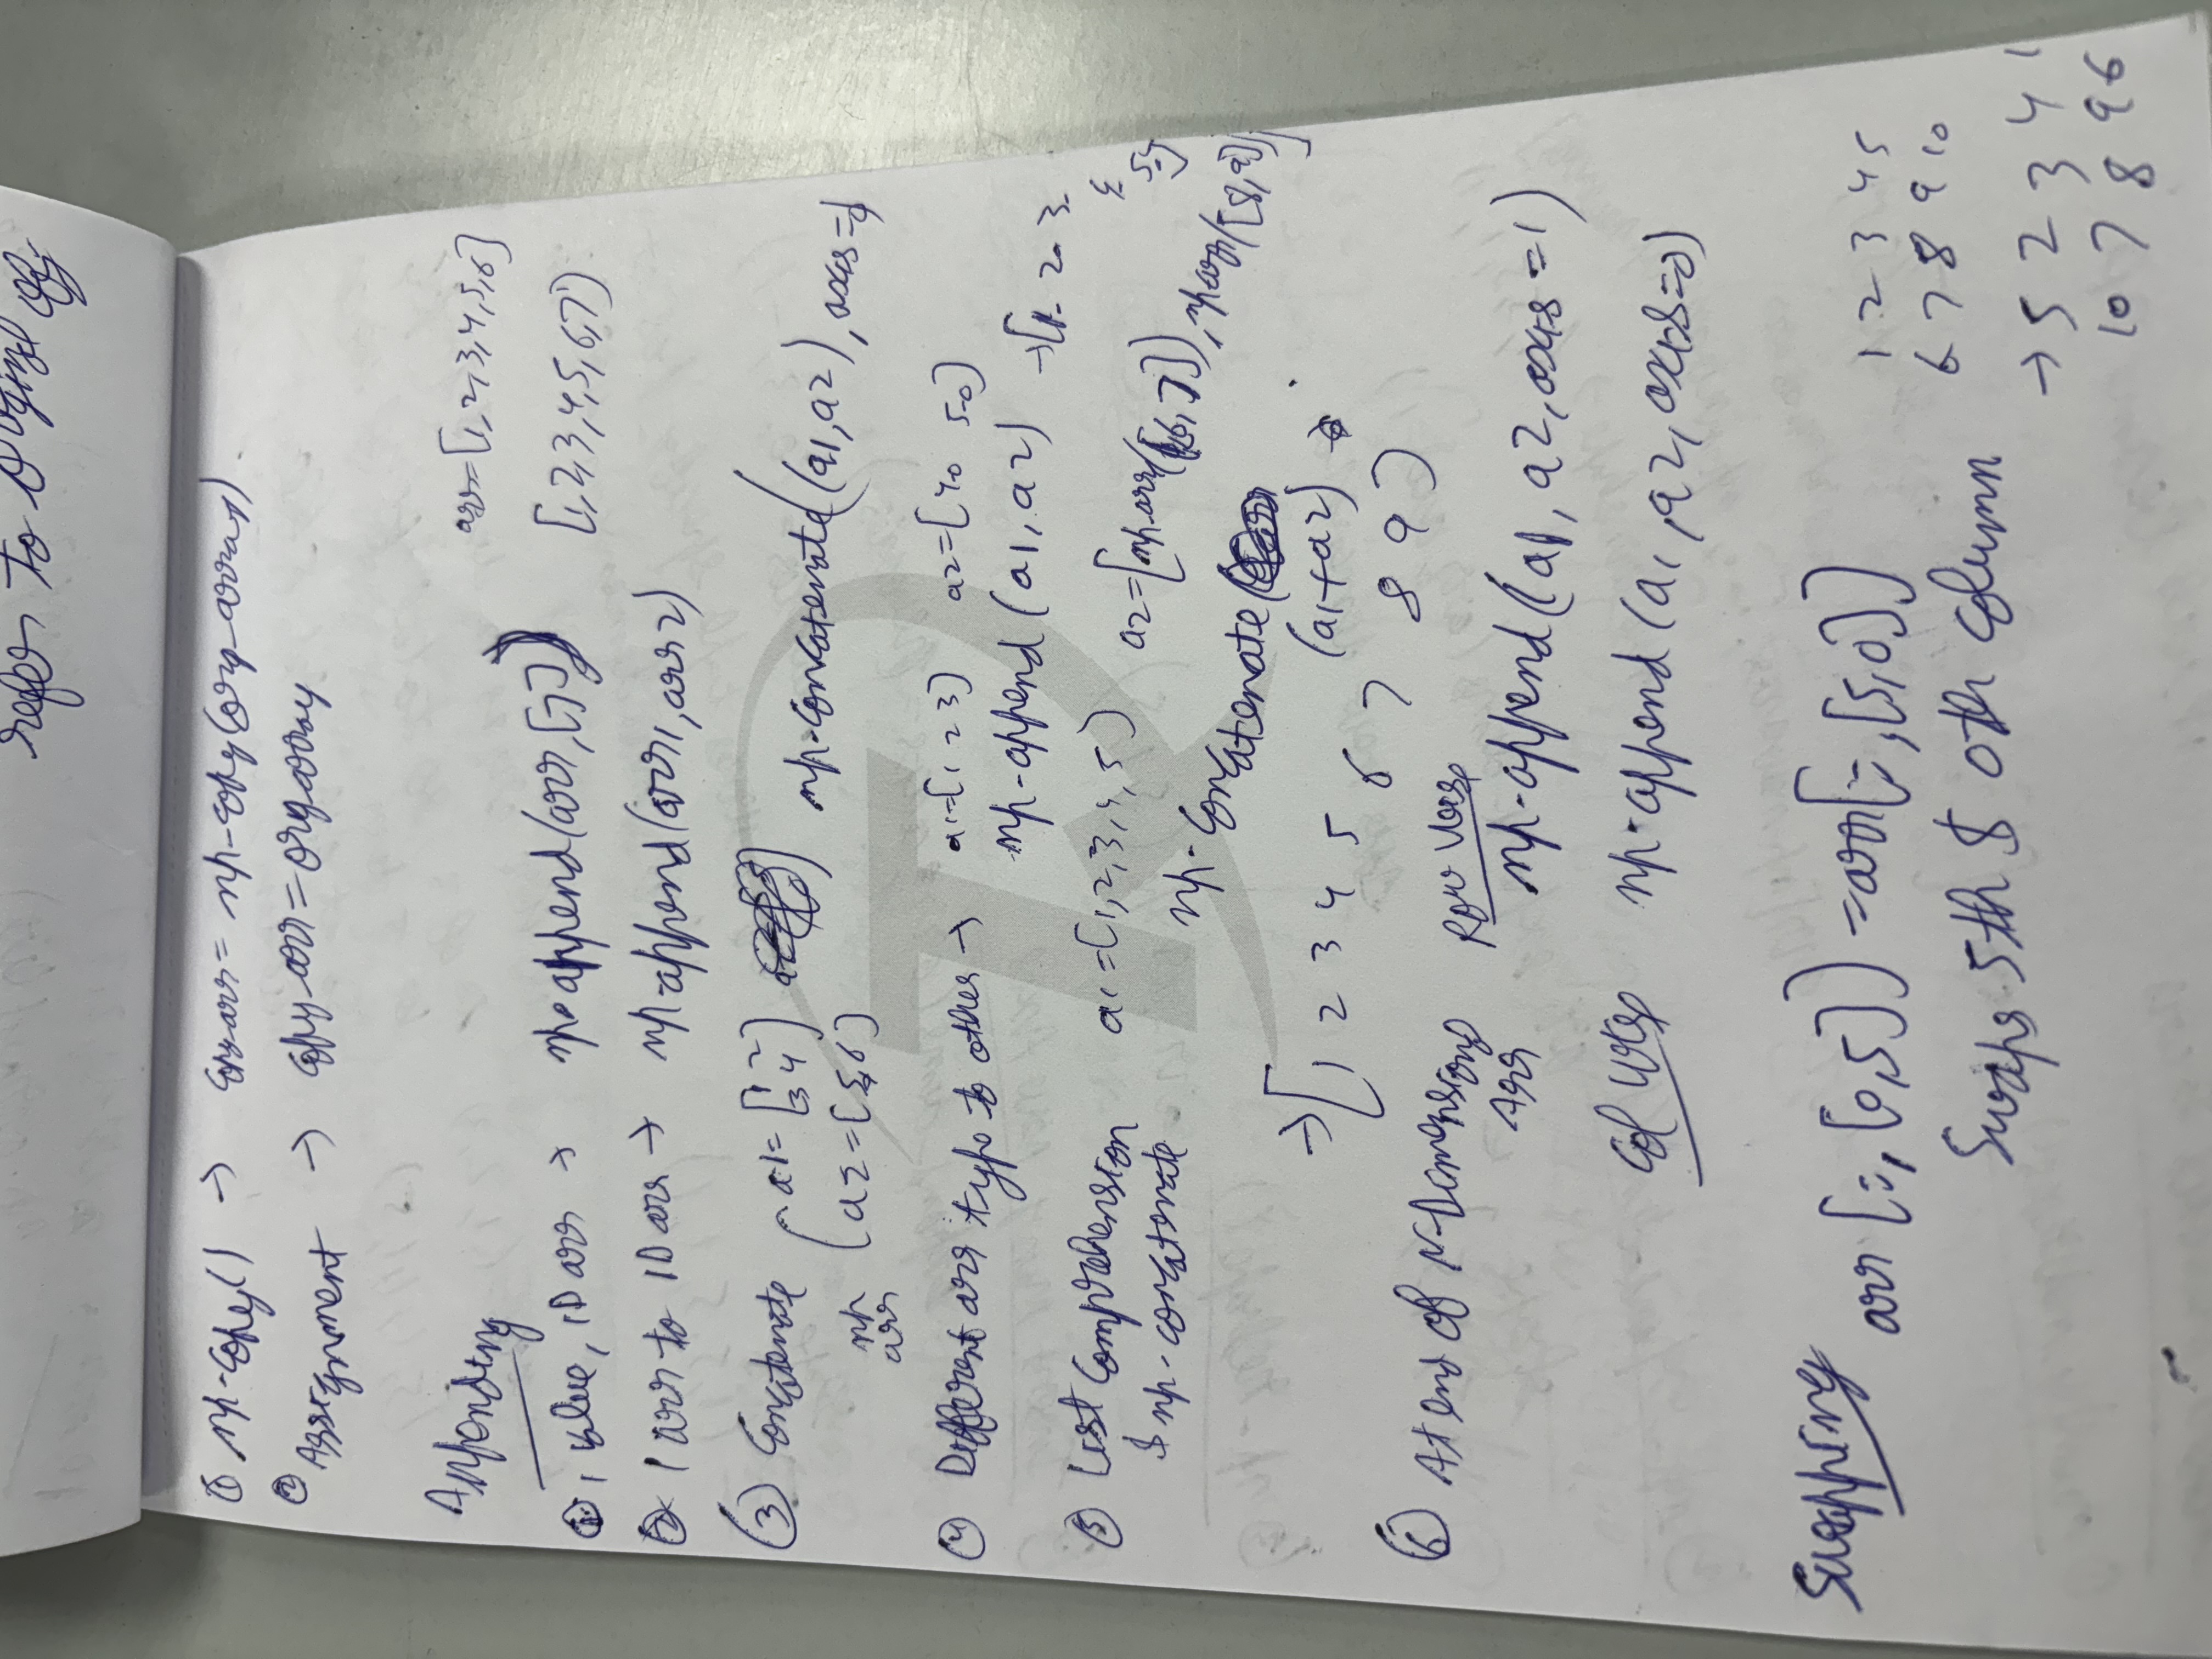 refers to original obj
① np.copy() → copy-arr = np.copy(org-array)
② Assignment → copy-arr = org array
Appending
arr=[1,2,3,4,5,6]
① 1 value, 1D arr → np.append(arr,[7])
[1,2,3,4,5,6,7]
② 1 arr to 1D arr → np.append(arr1,arr2)
③ Concatenate a1=[1 2
3 4] np.concatenate((a1,a2), axis=0)
np arr a2=[5,6]
④ Different arr type to other → a1=[1 2 3] a2=[4.0 5.0]
np.append(a1,a2) →[1. 2. 3.
4.
5.]
⑤ List Comprehension a1=[1,2,3,4,5] a2=[np.arr([6,7]),np.arr([8,9])]
$ np.concatenate
np.concatenate(
(a1+a2)
→[1 2 3 4 5 6 7 8 9]
⑥ At end of N-Dimensional Arr Row Wise
np.append(a1, a2, axis=1)
Col Wise np.append(a1, a2, axis=0)
Swapping arr[:,[0,5]]=arr[:,[5,0]]
Swaps 5th $ 0th column
1 2 3 4 5
6 7 8 9 10
→ 5 2 3 4 1
10 7 8 9 6